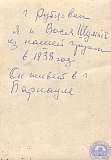 г. Рубцовск
Я и Вася Шумей
из нашей группы
в 1938 год.
Он живет в г.
Барнауле